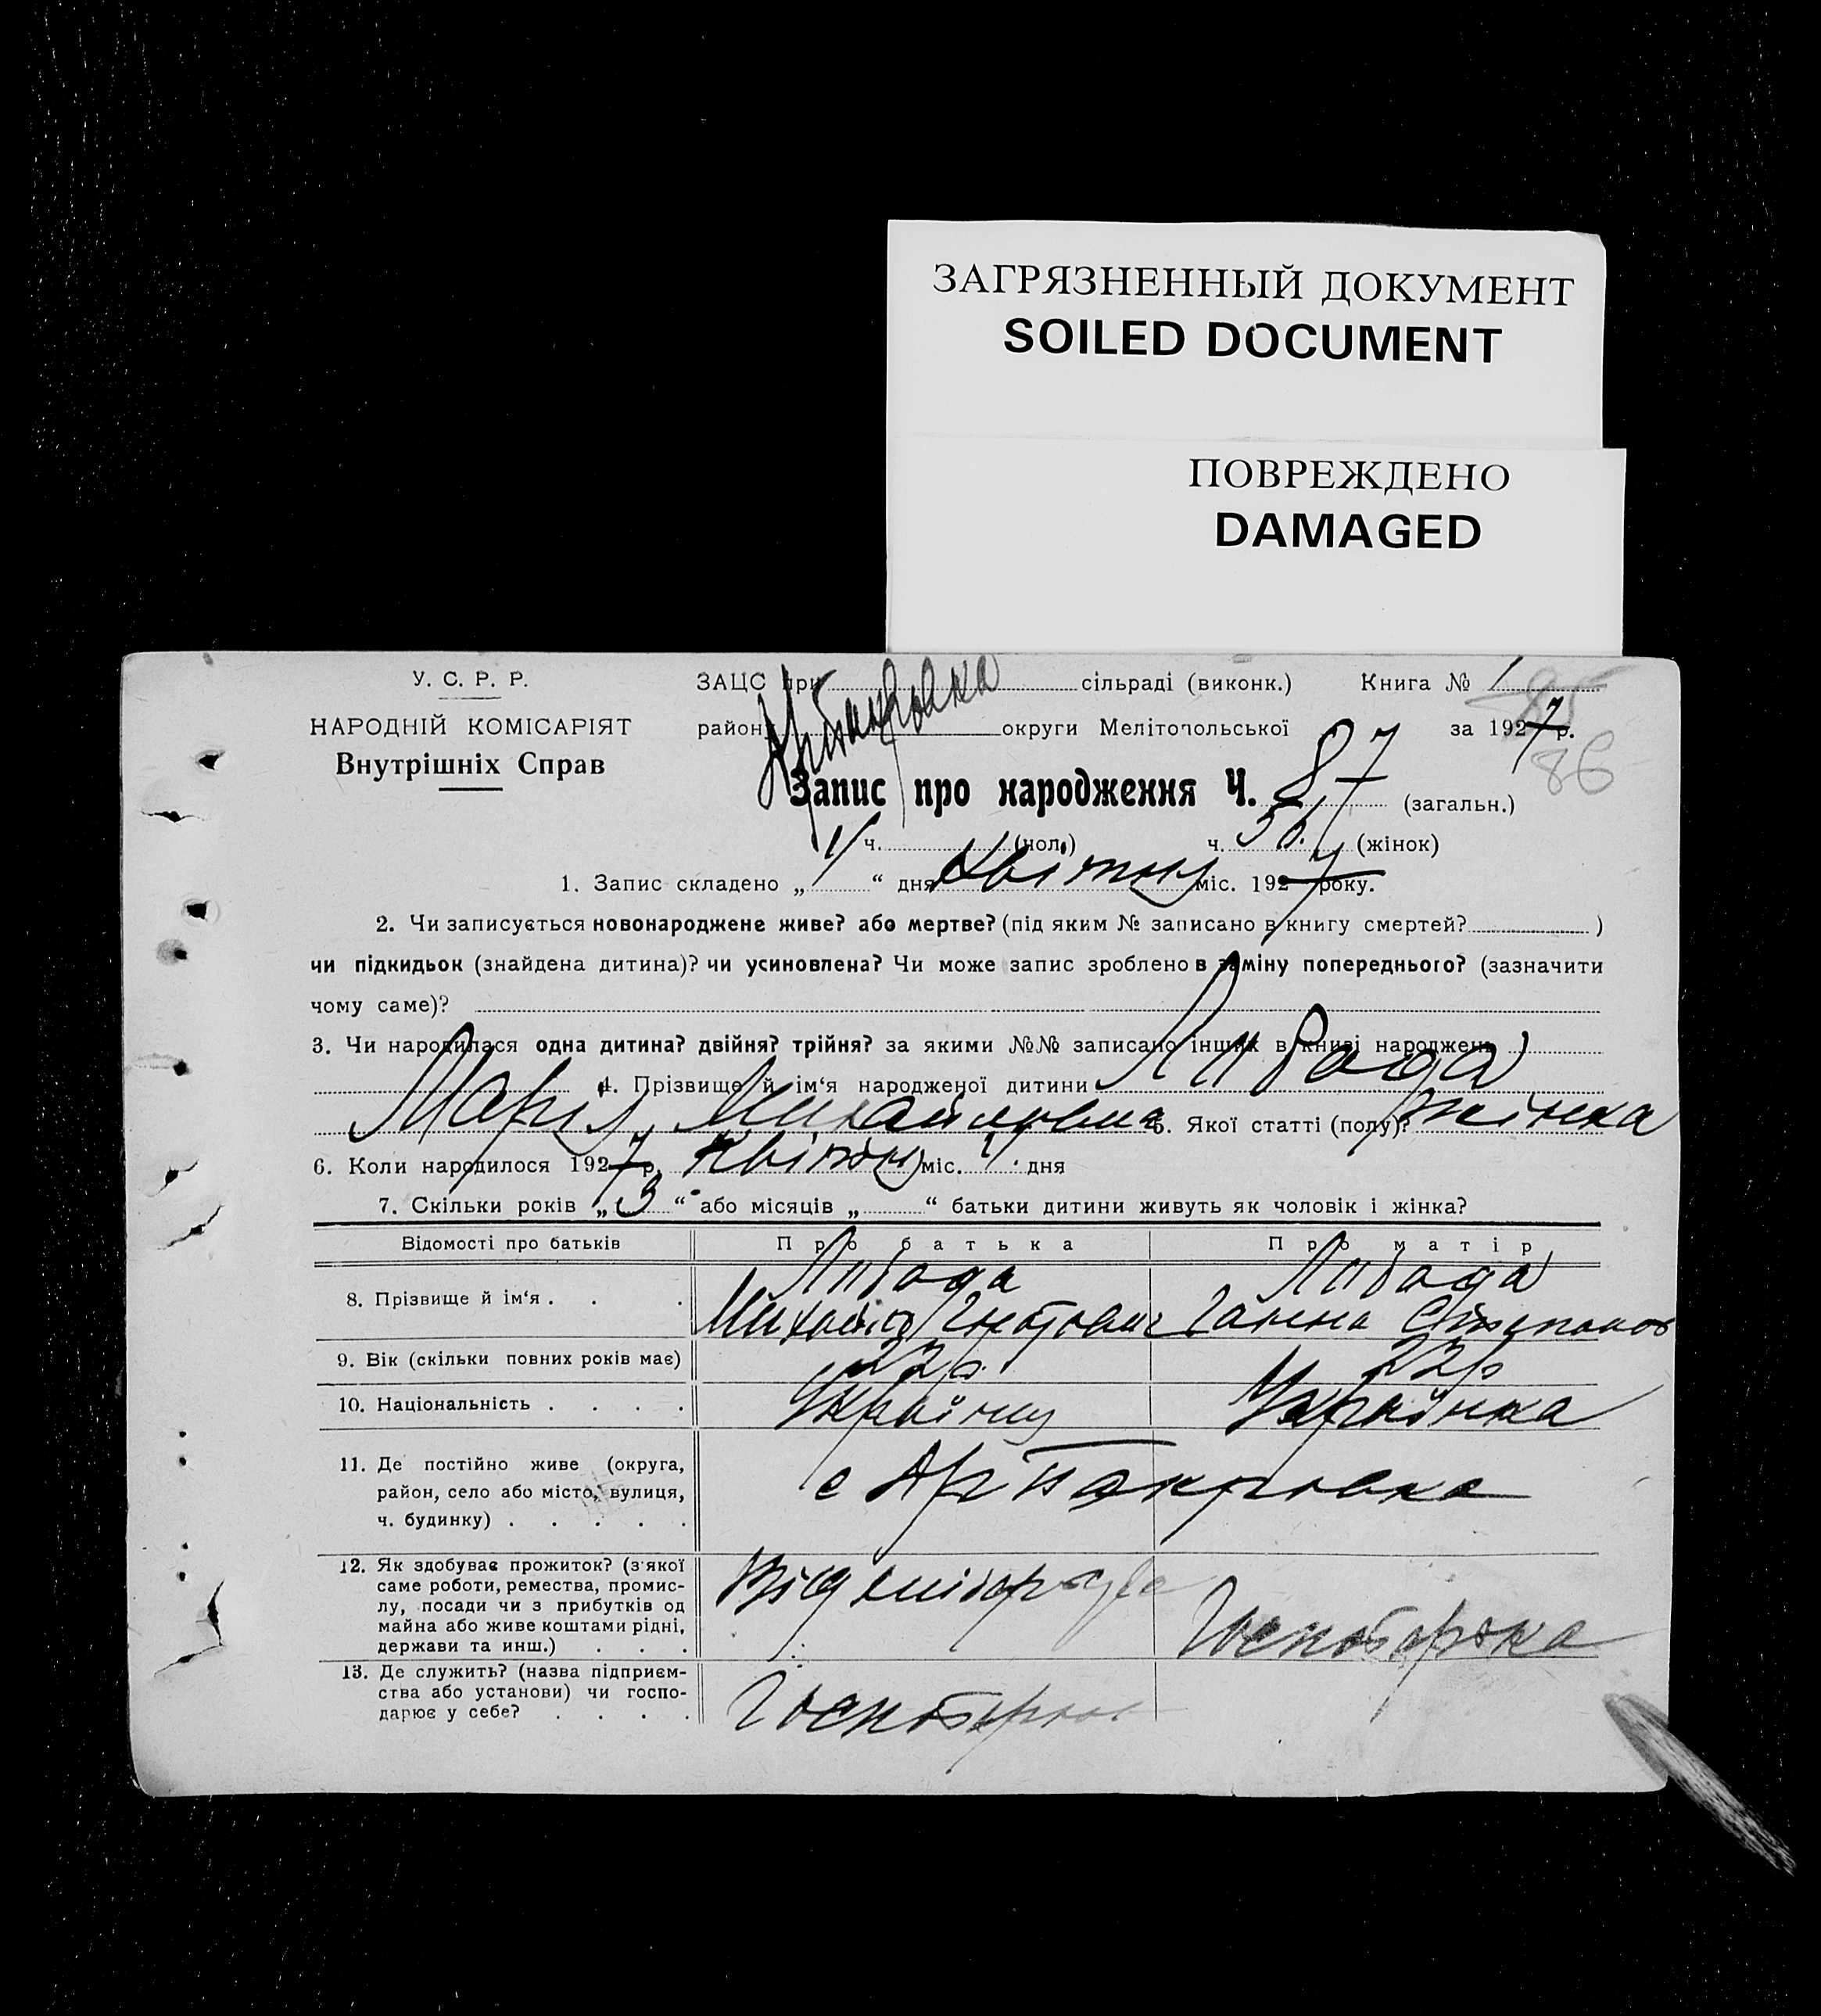 ЗАГРЯЗНЕННЫЙ ДОКУМЕНТ
SOILED DOCUMENT
ПОВРЕЖДЕНО
DAMAGED
У. С. Р. Р.
НАРОДНІЙ КОМІСАРІЯТ
Внутрішніх Справ
ЗАЦС при сільраді (виконк.) Книга № 1
район округи Мелітопольської за 1927 р.
86
Запис про народження Ч. 87 (загальн.)
ч. (чол.) ч. (жінок)
1. Запис складено „ 1 “ дня Квітня міс. 1927 року.
2. Чи записується новонароджене живе? або мертве? (під яким № записано в книгу смертей? )
чи підкидьок (знайдена дитина)? чи усиновлена? Чи може запис зроблено в заміну попереднього? (зазначити
чому саме)?
3. Чи народилася одна дитина? двійня? трійня? за якими №№ записано інших в книзі народжень
4. Прізвище й ім‘я народженої дитини Либода
Марія Михайловна 5. Якої статті (полу)? жінка
6. Коли народилося 1927 р. Квітня міс. 1 дня
7. Скільки років „ 3 “ або місяців „ “ батьки дитини живуть як чоловік і жінка?
Відомості про батьків Про батька Про матір
8. Прізвище й ім‘я . . . Либода Либода
Михайло Ганна
9. Вік (скільки повних років має) 22р. 22р
10. Національність . . . . Українец Українка
11. Де постійно живе (округа,
район, село або місто, вулиця,
ч. будинку) . . . . . с
12. Як здобуває прожиток? (з‘якої
саме роботи, ремества, промис-
лу, посади чи з прибутків од
майна або живе коштами рідні,
держави та инш.) . . . Господарка
13. Де служить? (назва підприєм-
ства або установи) чи госпо-
дарює у себе? . . . .